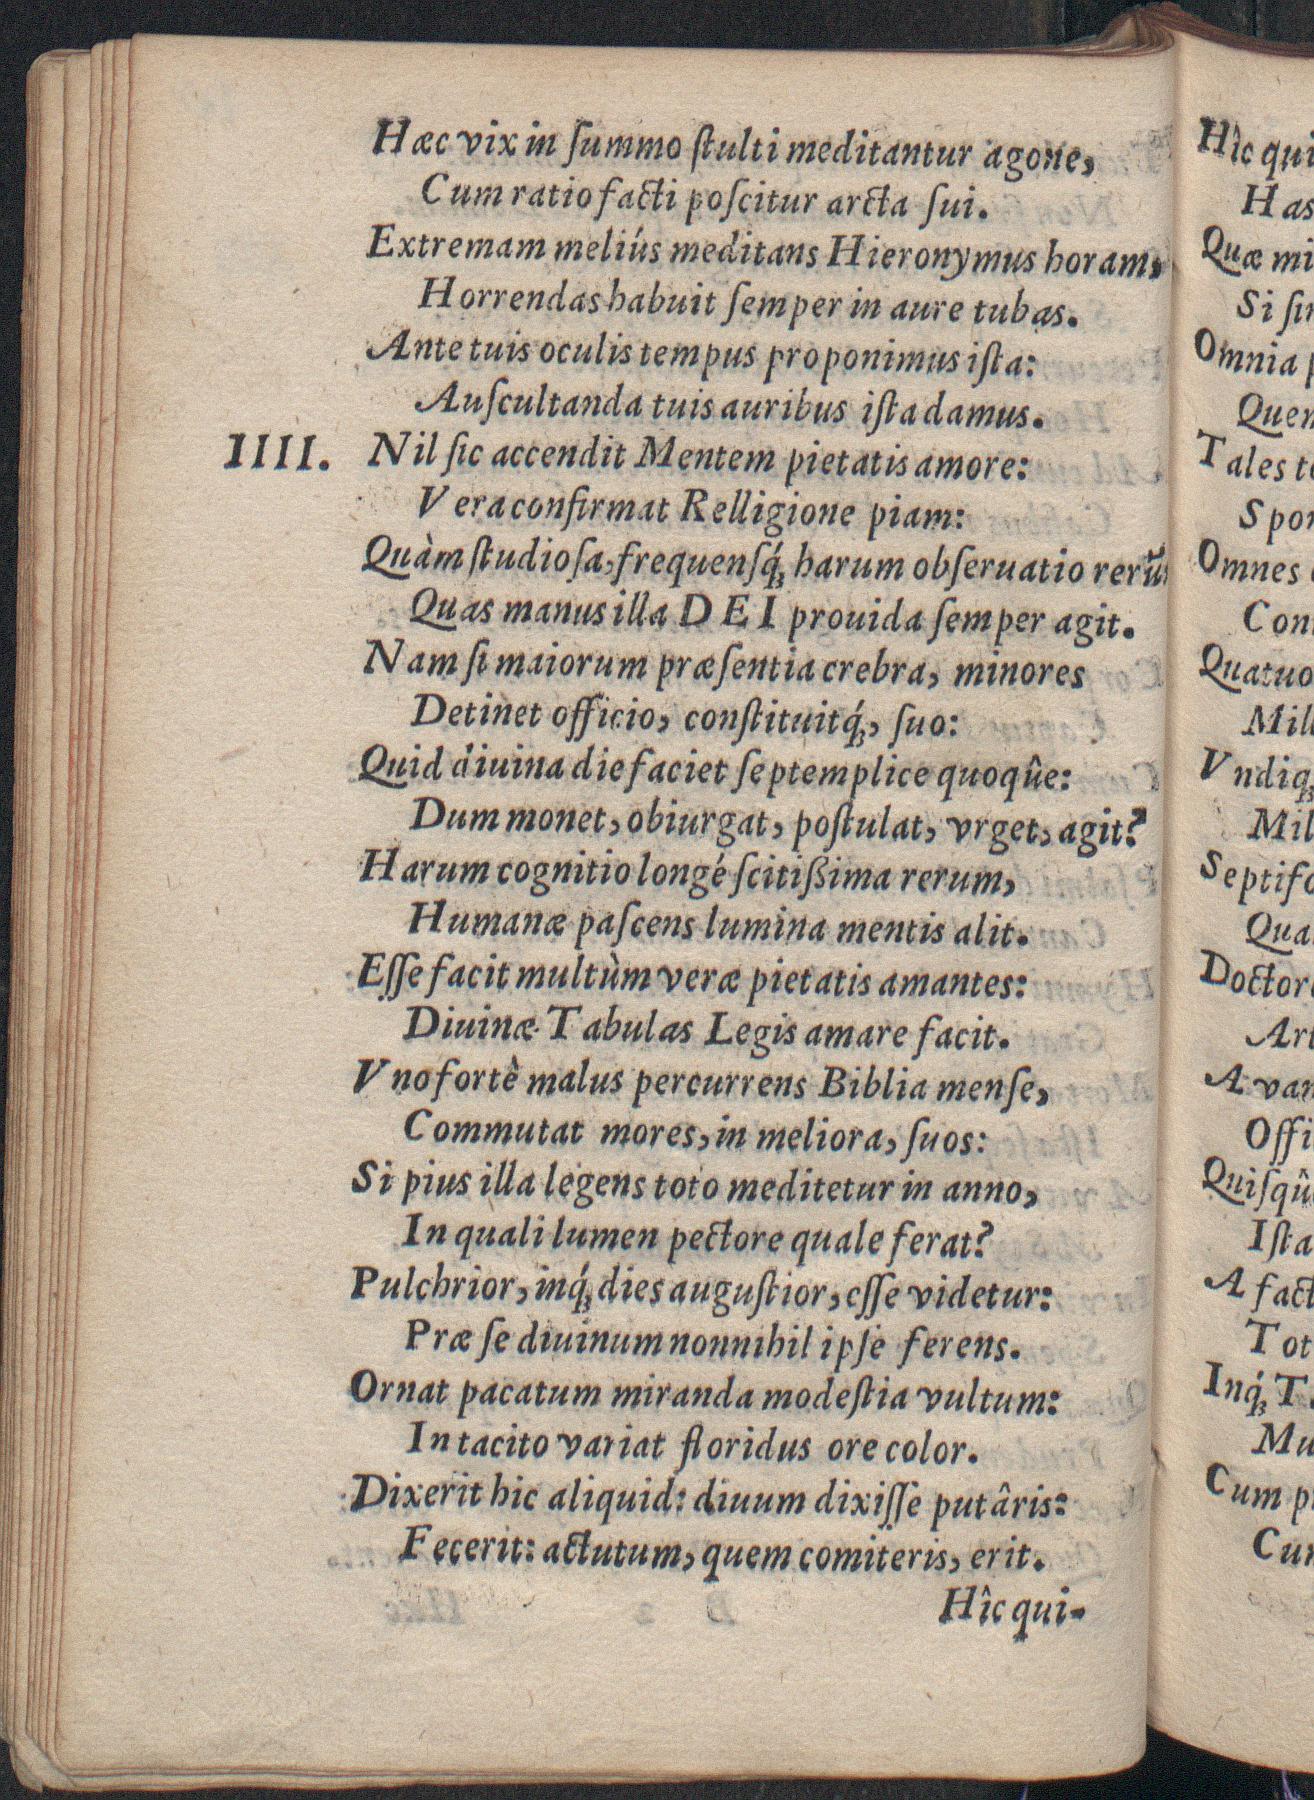 Hæc vix in ſummo ſtulti meditantur agone,
Cum ratio facti poſcitur arcta ſui.
Extremam meliús meditans Hieronymus horam,
Horrendas habuit ſemper in aure tubas.
Ante tuis oculis tempus proponimus iſta:
Auſcultanda tuis auribus iſta damus.
IIII. Nil ſic accendit Mentem pietatis amore:
Vera confirmat Relligione piam:
Quàm ſtudioſa, frequenſq́ꝫ harum obſeruatio rerũ
Quas manus illa DEI prouida ſemper agit.
Nam ſi maiorum præſentia crebra, minores
Detinet officio, conſtituitq́ꝫ, ſuo:
Quid diuina die faciet ſeptemplice quoqûe:
Dum monet, obiurgat, poſtulat, vrget, agit?
Harum cognitio longé ſcitißima rerum,
Humanæ paſcens lumina mentis alit.
Eſſe facit multùm veræ pietatis amantes:
Diuinæ Tabulas Legis amare facit.
Vno fortè malus percurrens Biblia menſe,
Commutat mores, in meliora, ſuos:
Si pius illa legens toto meditetur in anno,
In quali lumen pectore quale ferat?
Pulchrior, inq́ꝫ dies auguſtior, eſſe videtur:
Præ ſe diuinum nonnihil ipſe ferens.
Ornat pacatum miranda modeſtia vultum:
In tacito variat floridus ore color.
Dixerit hic aliquid: diuum dixiſſe putâris:
Fecerit: actutum, quem comiteris, erit.
Hîc qui-
Hîc qui
Has
Quæ mi
Si ſin
Omnia
Quen
Tales te
Spon
Omnes
Con
Quatuo
Mill
Vndiqꝫ
Mil
Septifo
Qua
Doctor
Art
A van
Offi
Quiſqû
Iſta
A fact
Tot
Inq́ꝫ T
Mu
Cum p
Cu